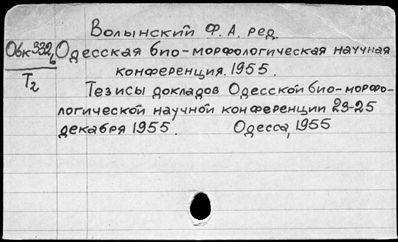 Волынский Ф. А. ред.
Обк 332,6
Т2
Одесская био-морфологическая научная
конференция. 1955.
Тезисы докладов Одесской био-морфо-
логической научной конференции 23-25
декабря 1955. Одесса, 1955